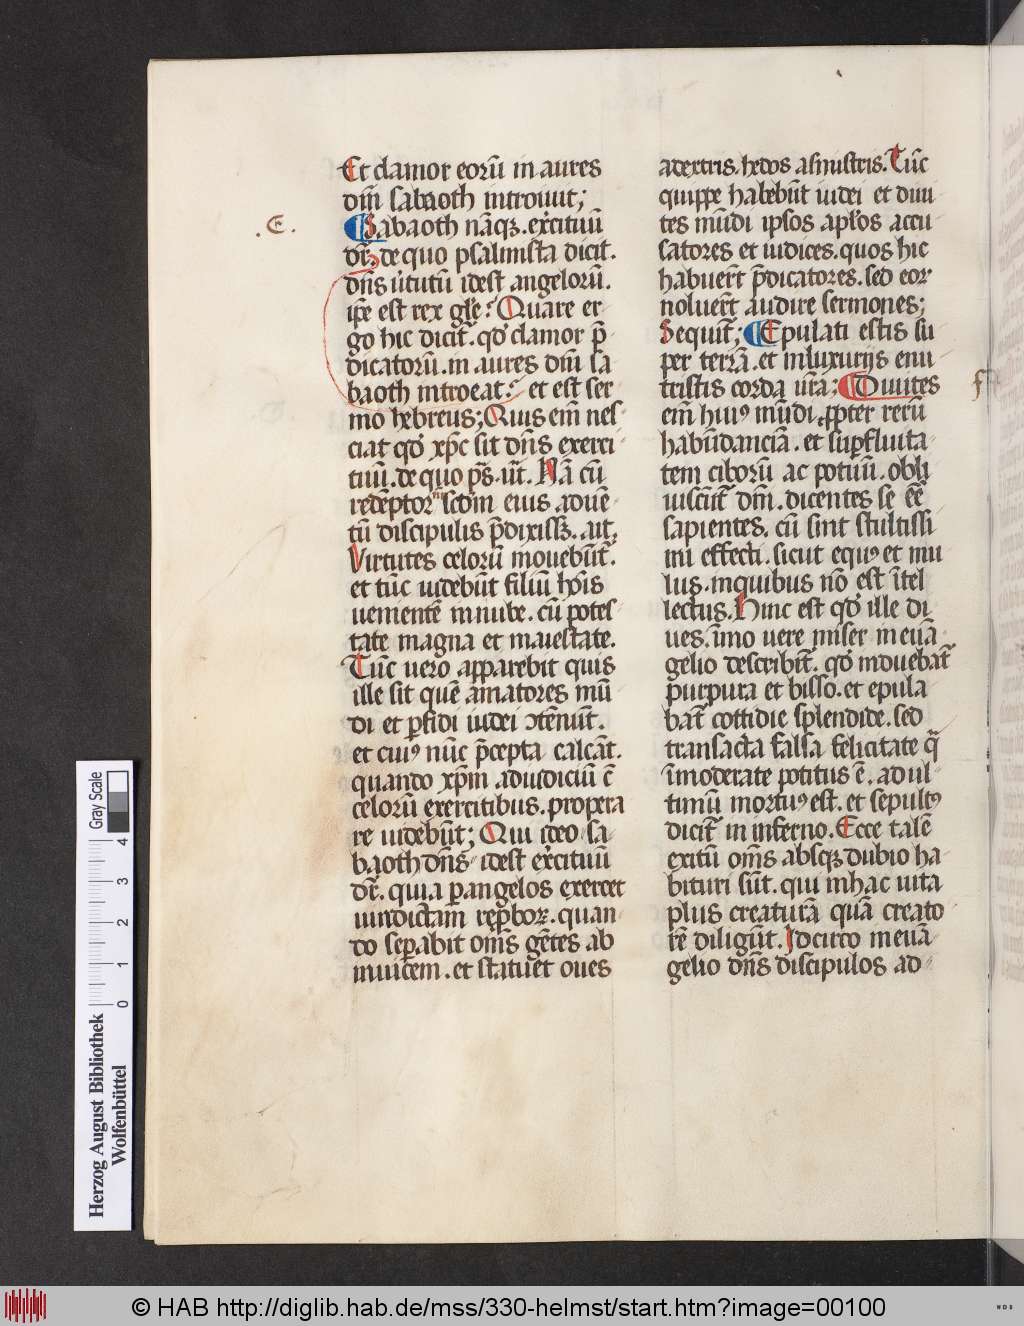 Et clamor eorū in aures
dn̄i sabaoth introiuit;
.E.
Sabaoth nāqꝫ exercituū
dr̄. de quo psalmista dicit.
dn̄s u̾tutū idest angelorū.
ip̄e est rex gl̄e. Quare er
go hic dicit̄. qd̾ clamor p̄
dicatorū. in aures dn̄i sa
baoth introeat. et est ser
mo hebreus; Quis em̄ nes
ciat qd̾ xp̄c sit dn̄s exerci
tuū. de quo p̄s. Nā cū
redēptor scd̄m eius aduē
tū discipulis p̄dixissꝫ. ait.
Virtutes celorū mouebūt̄.
et tūc uidebūt filiū ho̅is
uenientē innube. cū potes
tate magna et maiestate.
Tūc uero apparebit quis
ille sit quē amatores mū
di et ꝑfidi iudei ↄtēnūt.
et cuiꝰ nūc p̄cepta calcāt.
quando xp̄m adiudiciū c̄
celorū exercitibus. propera
re uidebūt; Qui ideo sa
baoth dn̄s idest ex̾cituū
dr̄. quia ꝑ angelos exercet
uindictam rep̱boꝝ. quan
do sepabit om̄s gētes ab
inuicem. et statuet oues
adextris. hedos asinistris. Tūc
quippe habebūt iudei et diui
tes mūdi ipsos apl̄os accu
satores et iudices. quos hic
habuer̄t p̄dicatores. sed eoꝝ
noluer̄t audire sermones;
Sequit̄; Epulati estis su
per terrā. et inluxuriis enu
tristis corda ur̄a; Diuites
f
em̄ huiꝰ mūdi ꝓpter rerū
habūdanciā. et suꝑfluita
tem ciborū ac potuū. obli
uiscūt̄ dn̄i. dicentes se ēē
sapientes. cū sint stultissi
mi effecti. sicut equꝰ et mu
lus. inquibus nō est ītel
lectus. Hinc est qd̾ ille di
ues. īmo uere miser ineuā
gelio describit̄. qd̾ īduebat̄
purpura et bisso. et epula
bat̄ cottidie splendide. sed
transacta falsa felicitate q̄
īmoderate potitus ē. adul
timū mortuꝰ est. et sepultꝰ
dicit̄ in inferno. Ecce talē
exitū om̄s absqꝫ dubio ha
bituri sūt. qui inhac uita
plus creaturā quā creato
rē diligūt. Idcirco ineuā
gelio dn̄s discipulos ad
Herzog August Bibliothek
Wolfenbüttel
0 1 2 3 4
Gray Scale
© HAB http://diglib.hab.de/mss/330-helmst/start.htm?image=00100